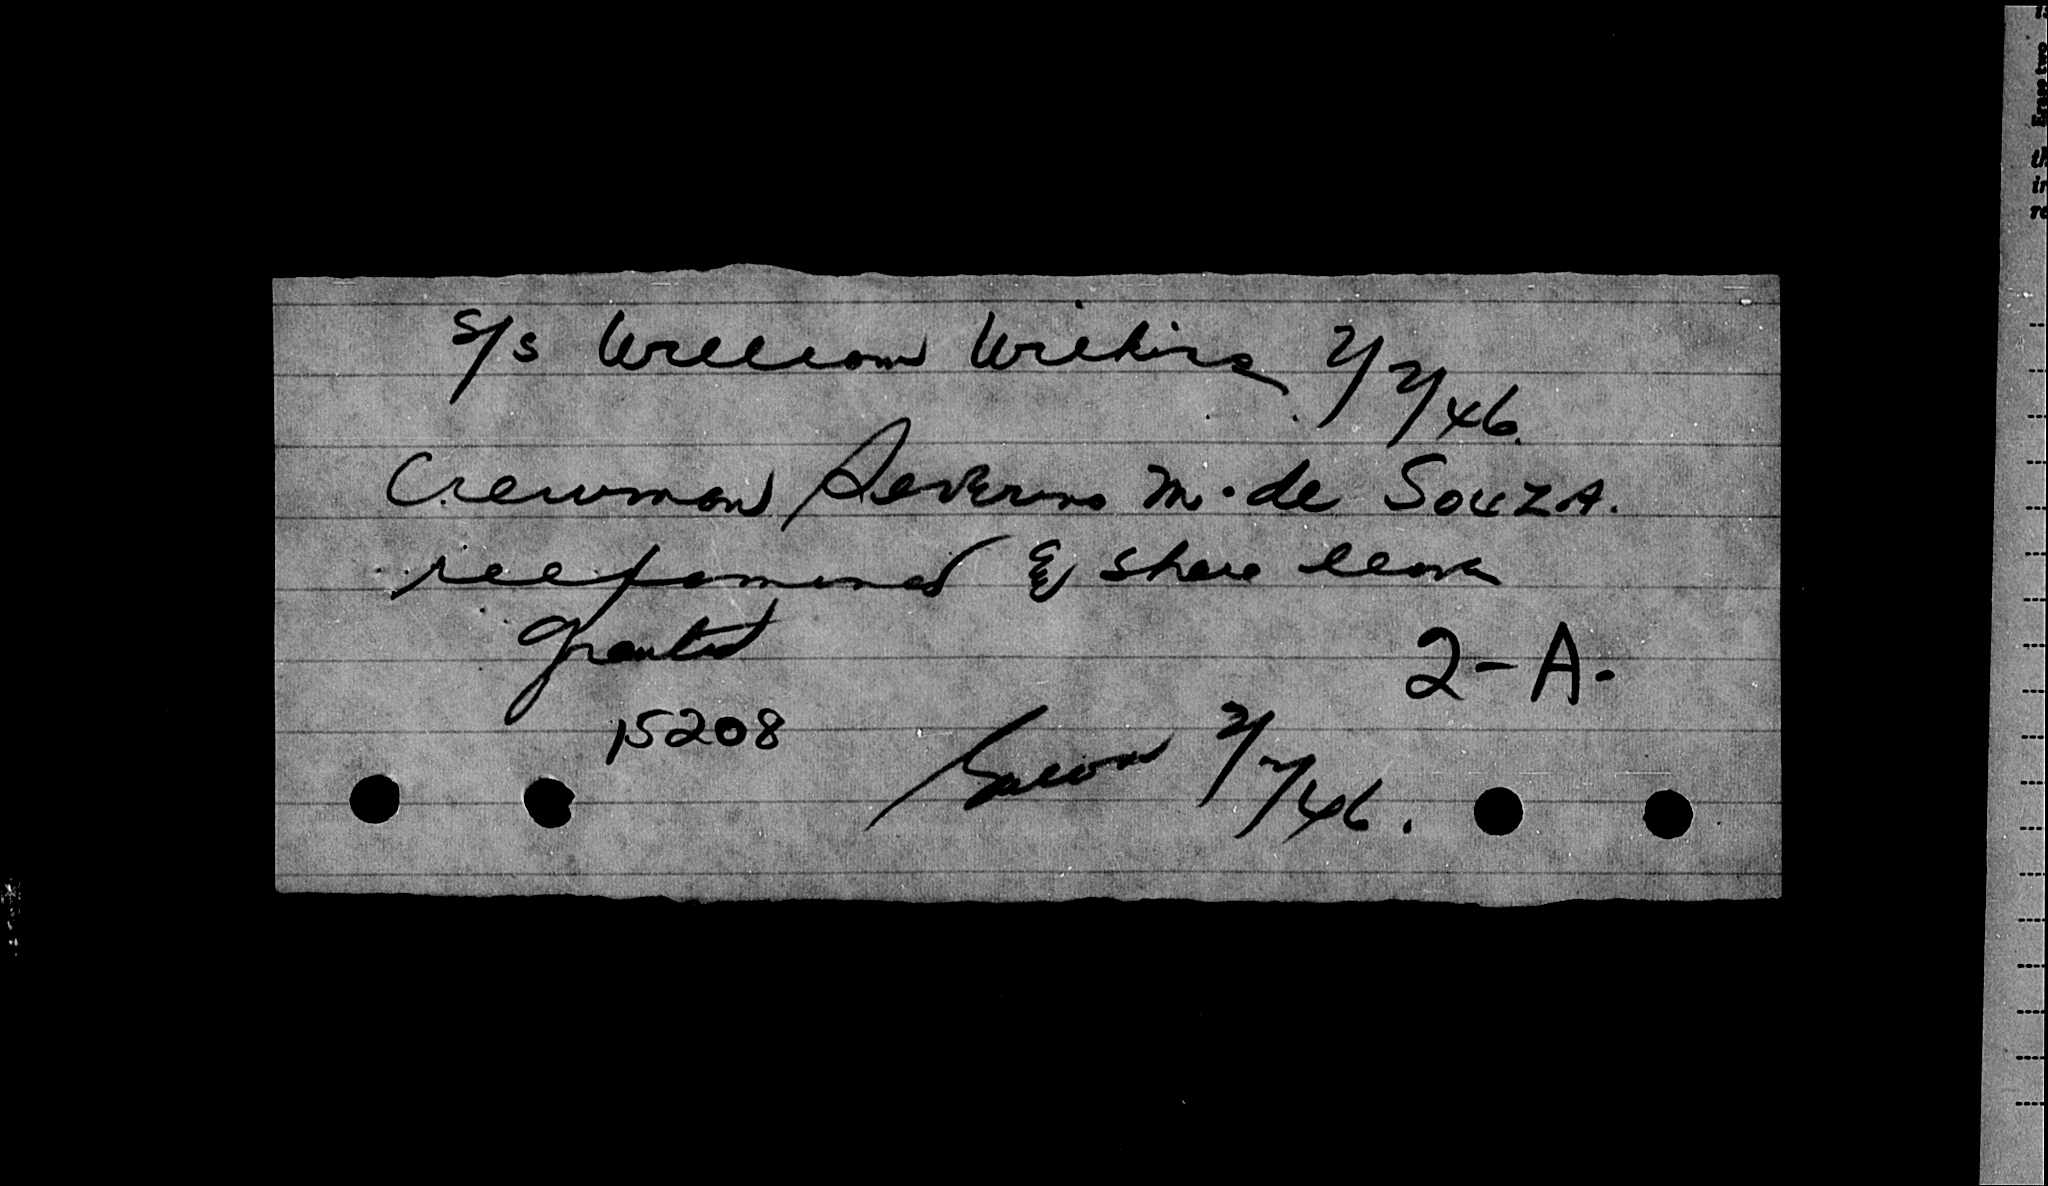 S/S William Wilkins 7/7/46.
Crewman Severino M. de SOUZA.
reexamined & shore leave
granted
2-A.
15208
7/7/46.